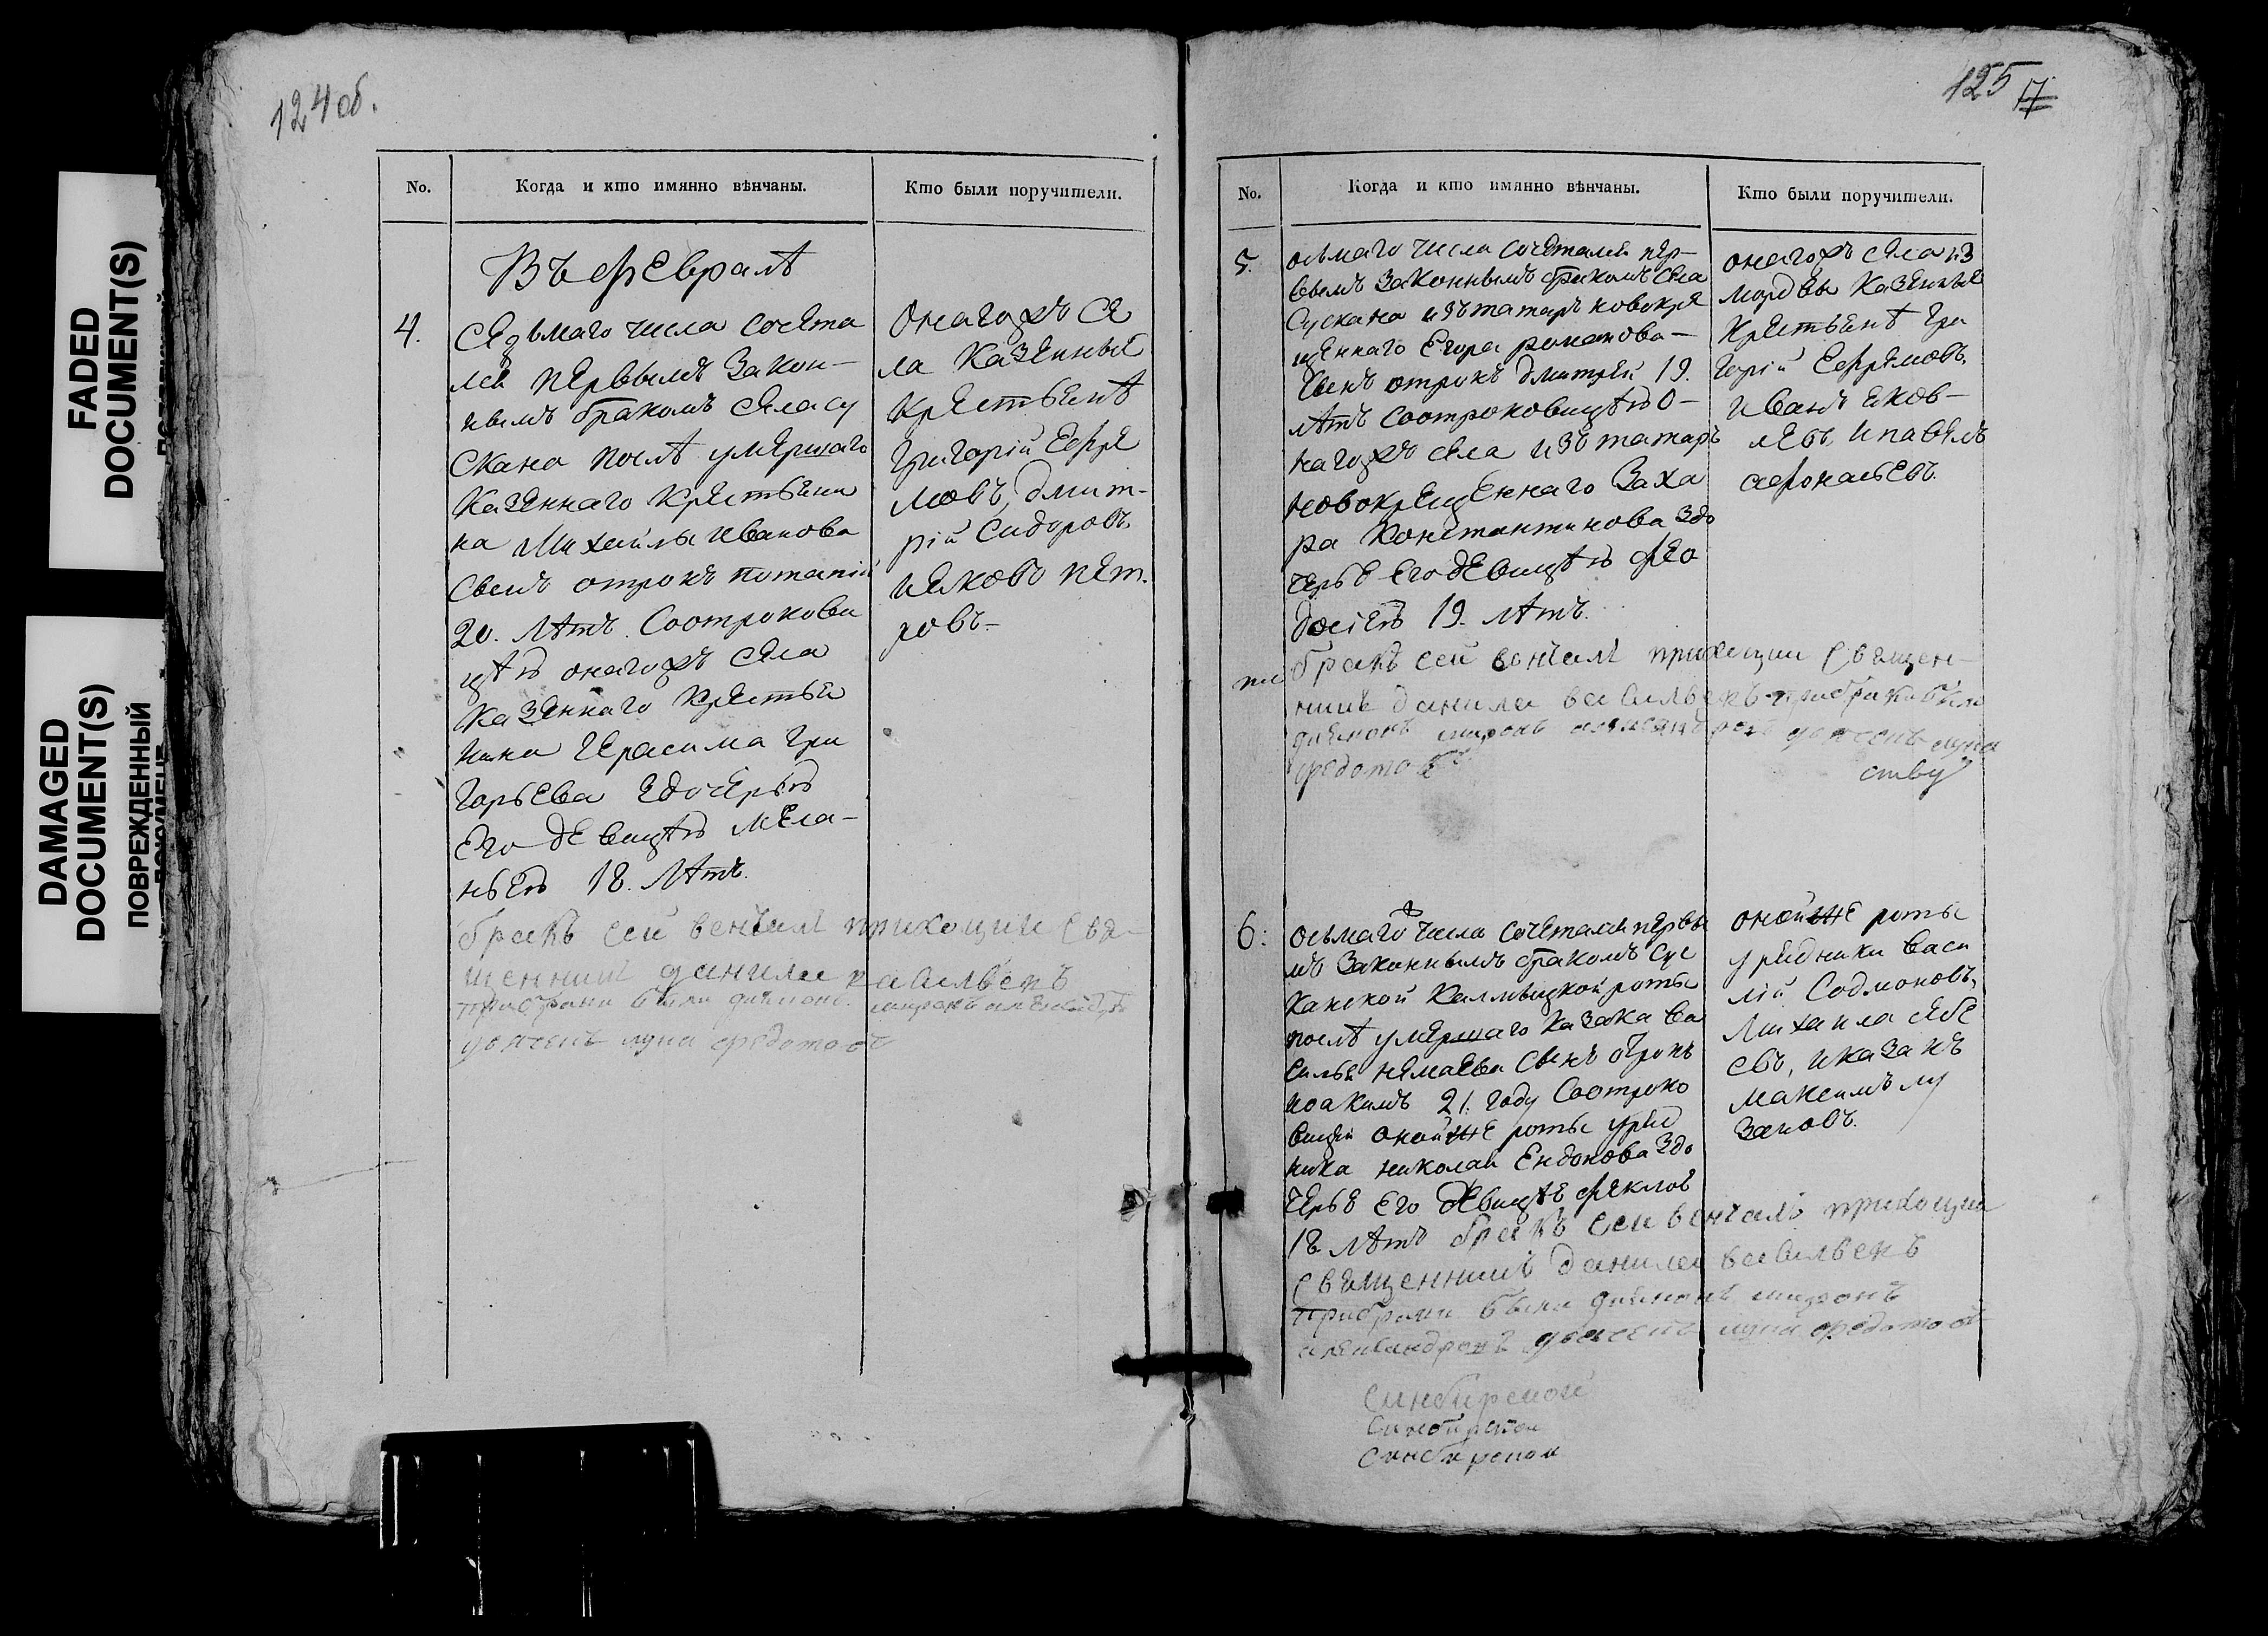 FADED
DOCUMENT(S)
DAMAGED
DOCUMENT(S)
ПОВРЕЖДЕННЫЙ
124 об.
No.
Когда и кто имянно вѣнчаны.
Кто были поручители.
Въ февралѣ
4.
седьмаго числа сочета
лся первымъ закон-
нымъ бракомъ села су
скана послѣ умершаго
казеннаго крестьяни
на Михайлы иванова
сынъ отрокъ потапій
20. лѣтъ. Соотрокови
цѣю онагожъ села
казеннаго крестья
нина Герасима гри
горьева здочерью
его девицѣю мела-
ньею 18. лѣтъ.
онагожъ се
ла казенные
крестьянѣ
григорій Ефре
мовъ, дмит-
рій Сидоровъ,
ияковъ пет-
ровъ-
бракъ сей венчалъ приходцкии свя-
щенникъ данила васильевъ
при браки были дияконъ
федотовъ
125
17
No.
Когда и кто имянно вѣнчаны.
Кто были поручители.
5.
осьмаго числа сочетался пер-
вымъ законнымъ бракомъ села
Сускана изътатаръ новокре
щеннаго Егора романова-
сынъ отрокъ дмитрей 19.
лѣтъ соотроковицѣю о-
нагожъ села изъ татаръ
новокрещеннаго Заха
ра Константинова здо
черью его девицѣю фео
досіею 19. лѣтъ.
онагожъ села из
мордвы казенные
крестьянѣ гри
горій Ефремовъ,
иванъ яков-
левъ, и павелъ
афонасьевъ.
бракъ сей венчалъ приходцкии священ-
никъ данила васильевъ при браки были
дияконъ
федотовъ
6:
осьмаго числа сочетался первы
мъ законнымъ бракомъ сус
канской калмыцкой роты
послѣ умершаго казака ва
силья немаева сынъ отрокъ
иоакимъ 21. году Соотроко
вицѣй онойже роты уряд
ника николая Ендонова здо
черью его девицѣю феклою
18 лѣтъ бракъ сей венчалъ приходцкии
священникъ данила васильевъ
при браки были дияконъ
федотовъ
онойже роты
урядники васи
лій Содмоновъ,
Михаила
евъ, и казакъ
максимъ му
зановъ.
синбирской
синбирской
синбирской